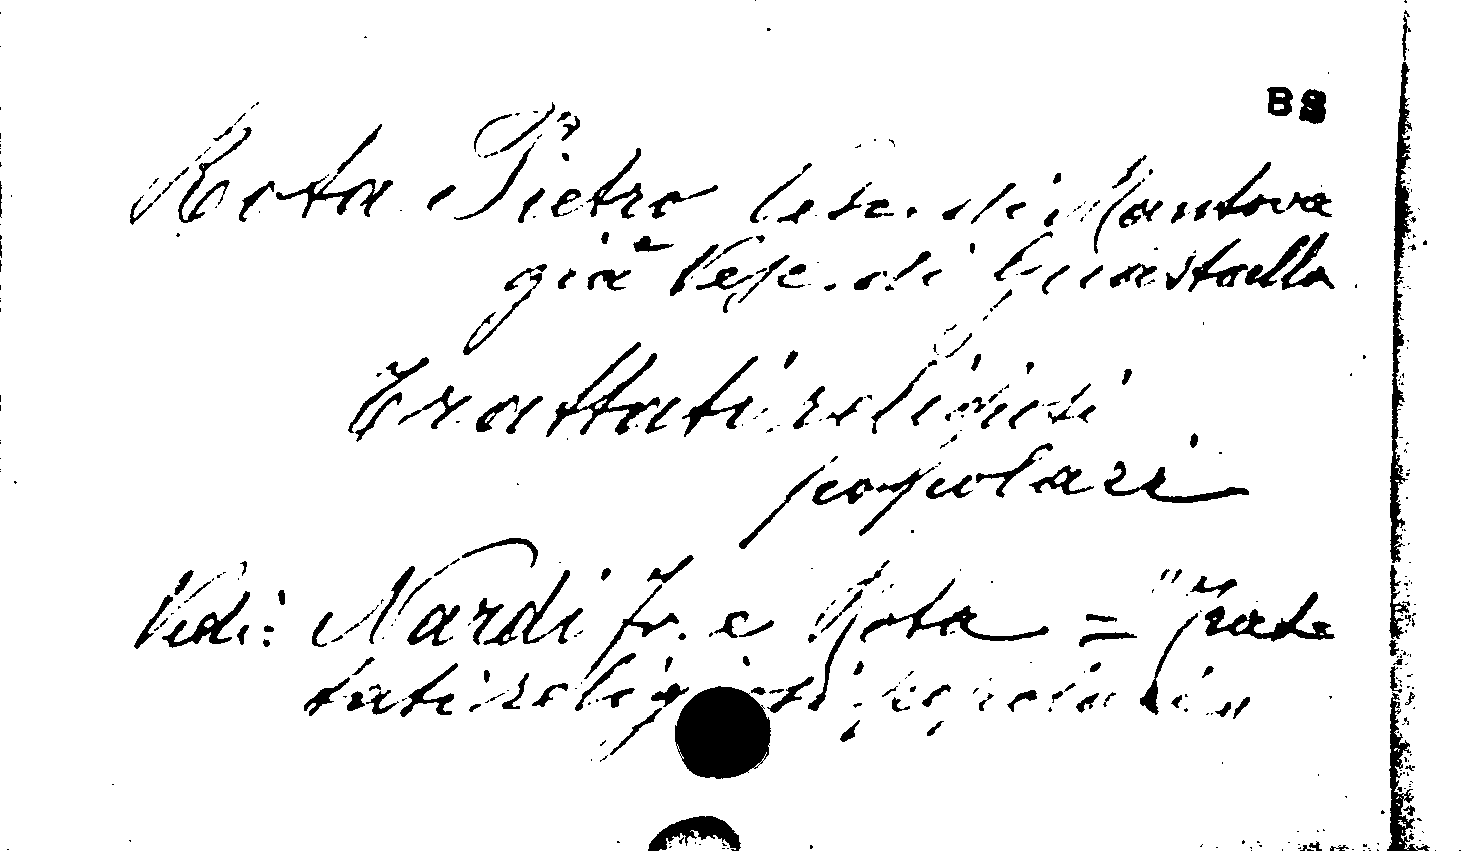 BS
Rota Pietro Vesc. di Mantova
già Vesc. di Guastalla
Trattati religiosi
popolari
Vedi: Nardi Fr. e Rota = "Trat=
tati religiosi popolari"